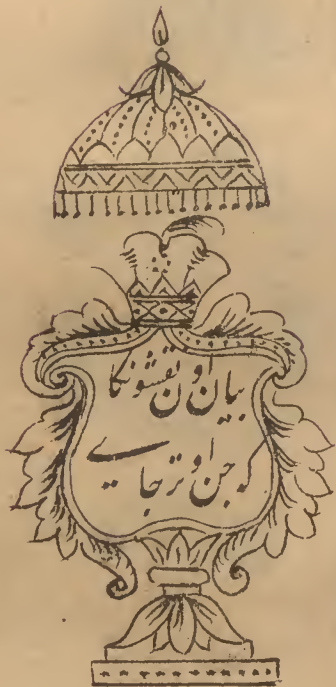 بیان اون نقشونکا
جن اوترجاے